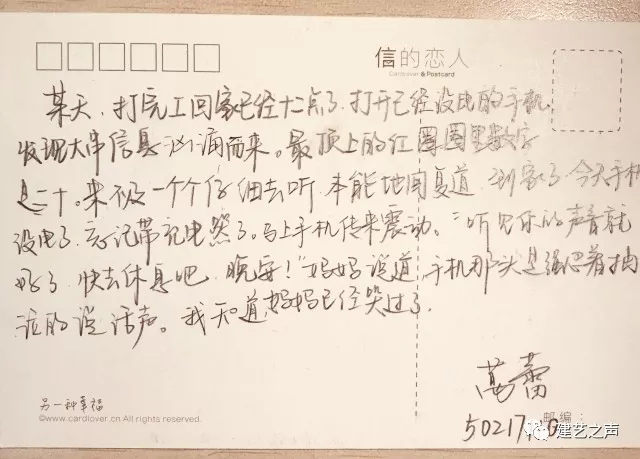 信的恋人
Cardlover & Postcard
某天，打完工回家已经十二点了，打开已经没电的手机，
发现大串信息汹涌而来。最顶上的红圈圈里数字
是二十。来不及一个个仔细去听，本能地回复道，到家了，今天手机
没电了，忘记带充电器了。马上手机传来震动。"听见你的声音就
好了，快去休息吧，晚安！"妈妈说道，手机那头是强忍着抽
泣的说话声。我知道，妈妈已经哭过了。
蕾
另一种幸福
©www.cardlover.cn All rights reserved.
邮编：
50217
建艺之声